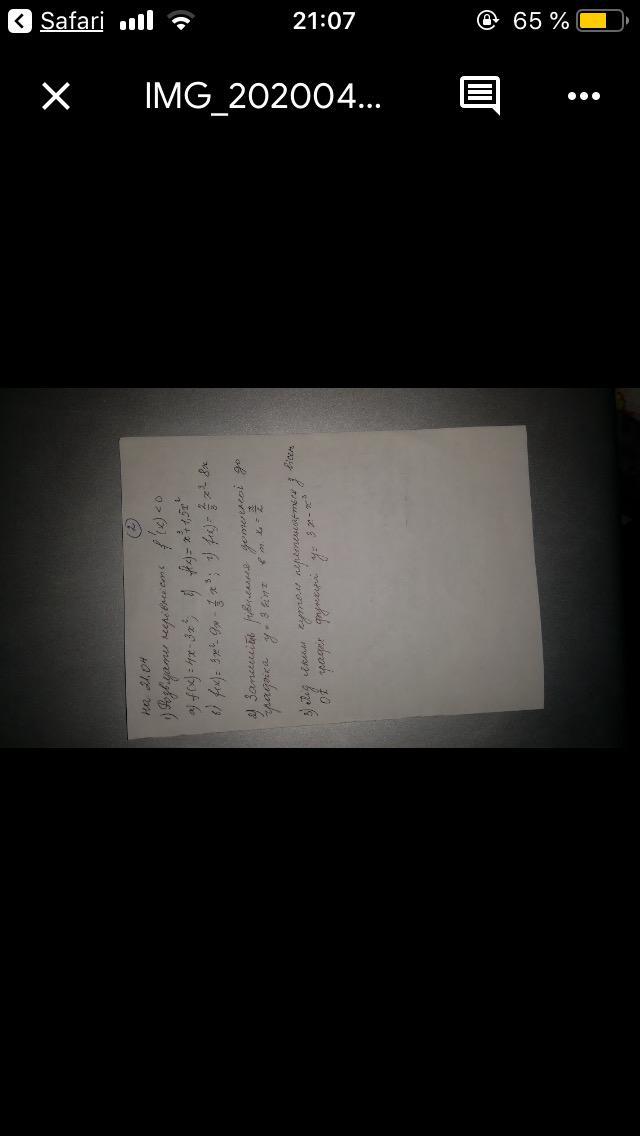 Safari 21:07 65 %
IMG_202004...
2
на 21.04
1) Розв'язати нерівність f'(x) < 0
а) f(x) = 4x - 3x²; б) f(x) = x³ + 1,5x²
в) f(x) = 3x² - 9x - 1/3 x³; г) f(x) = 2/3 x³ - 8x
2) Запишіть рівняння дотичної до
графіка y = 3 sin x в т. x₀ = π/2
3) Під яким кутом перетинається з віссю
OX графік функції y = 3x - x³